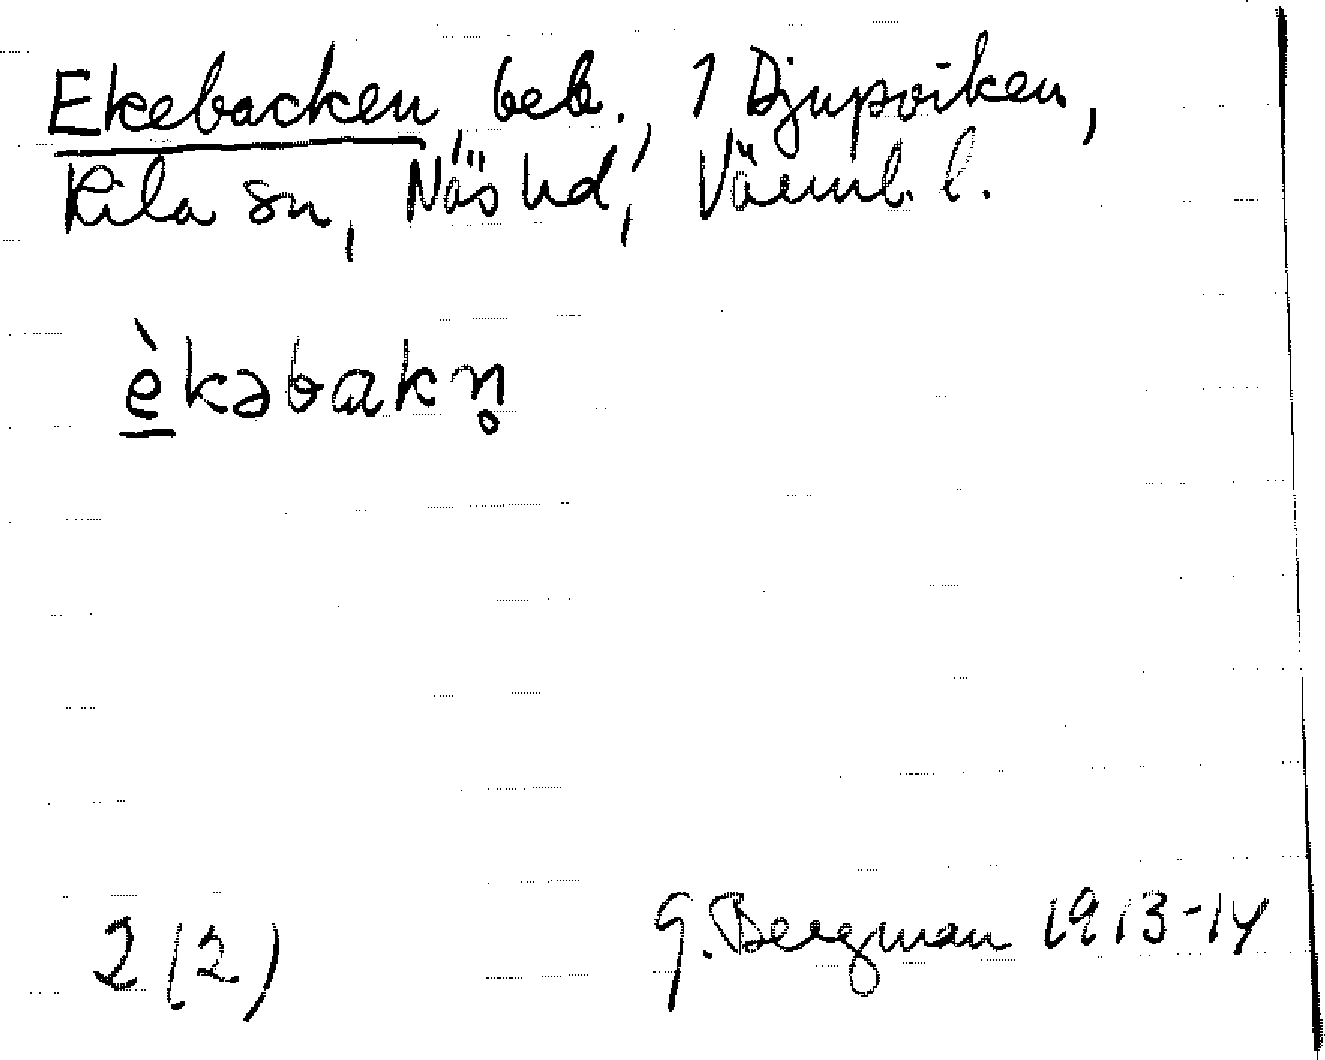 Ekebacken, beb., 1 Djupviken,
Kila sn, Näs hd, Värml. l.
è̲kəbakn̥
2 (2) G. Bergman 1913-14